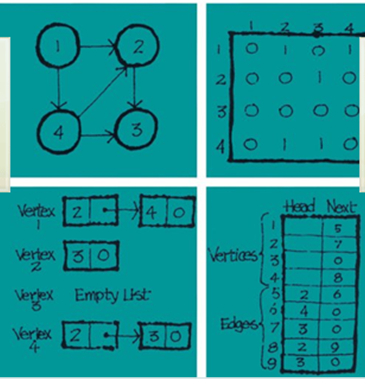 1 2
4 3
1 2 3 4
1 0 1 0 1
2 0 0 1 0
3 0 0 0 0
4 0 1 1 0
Vertex 1 2 4 0
Vertex 2 3 0
Vertex 3 Empty List
Vertex 4 2 3 0
Head Next
Vertices
1 5
2 7
3 0
4 8
Edges
5 2 6
6 4 0
7 3 0
8 2 9
9 3 0